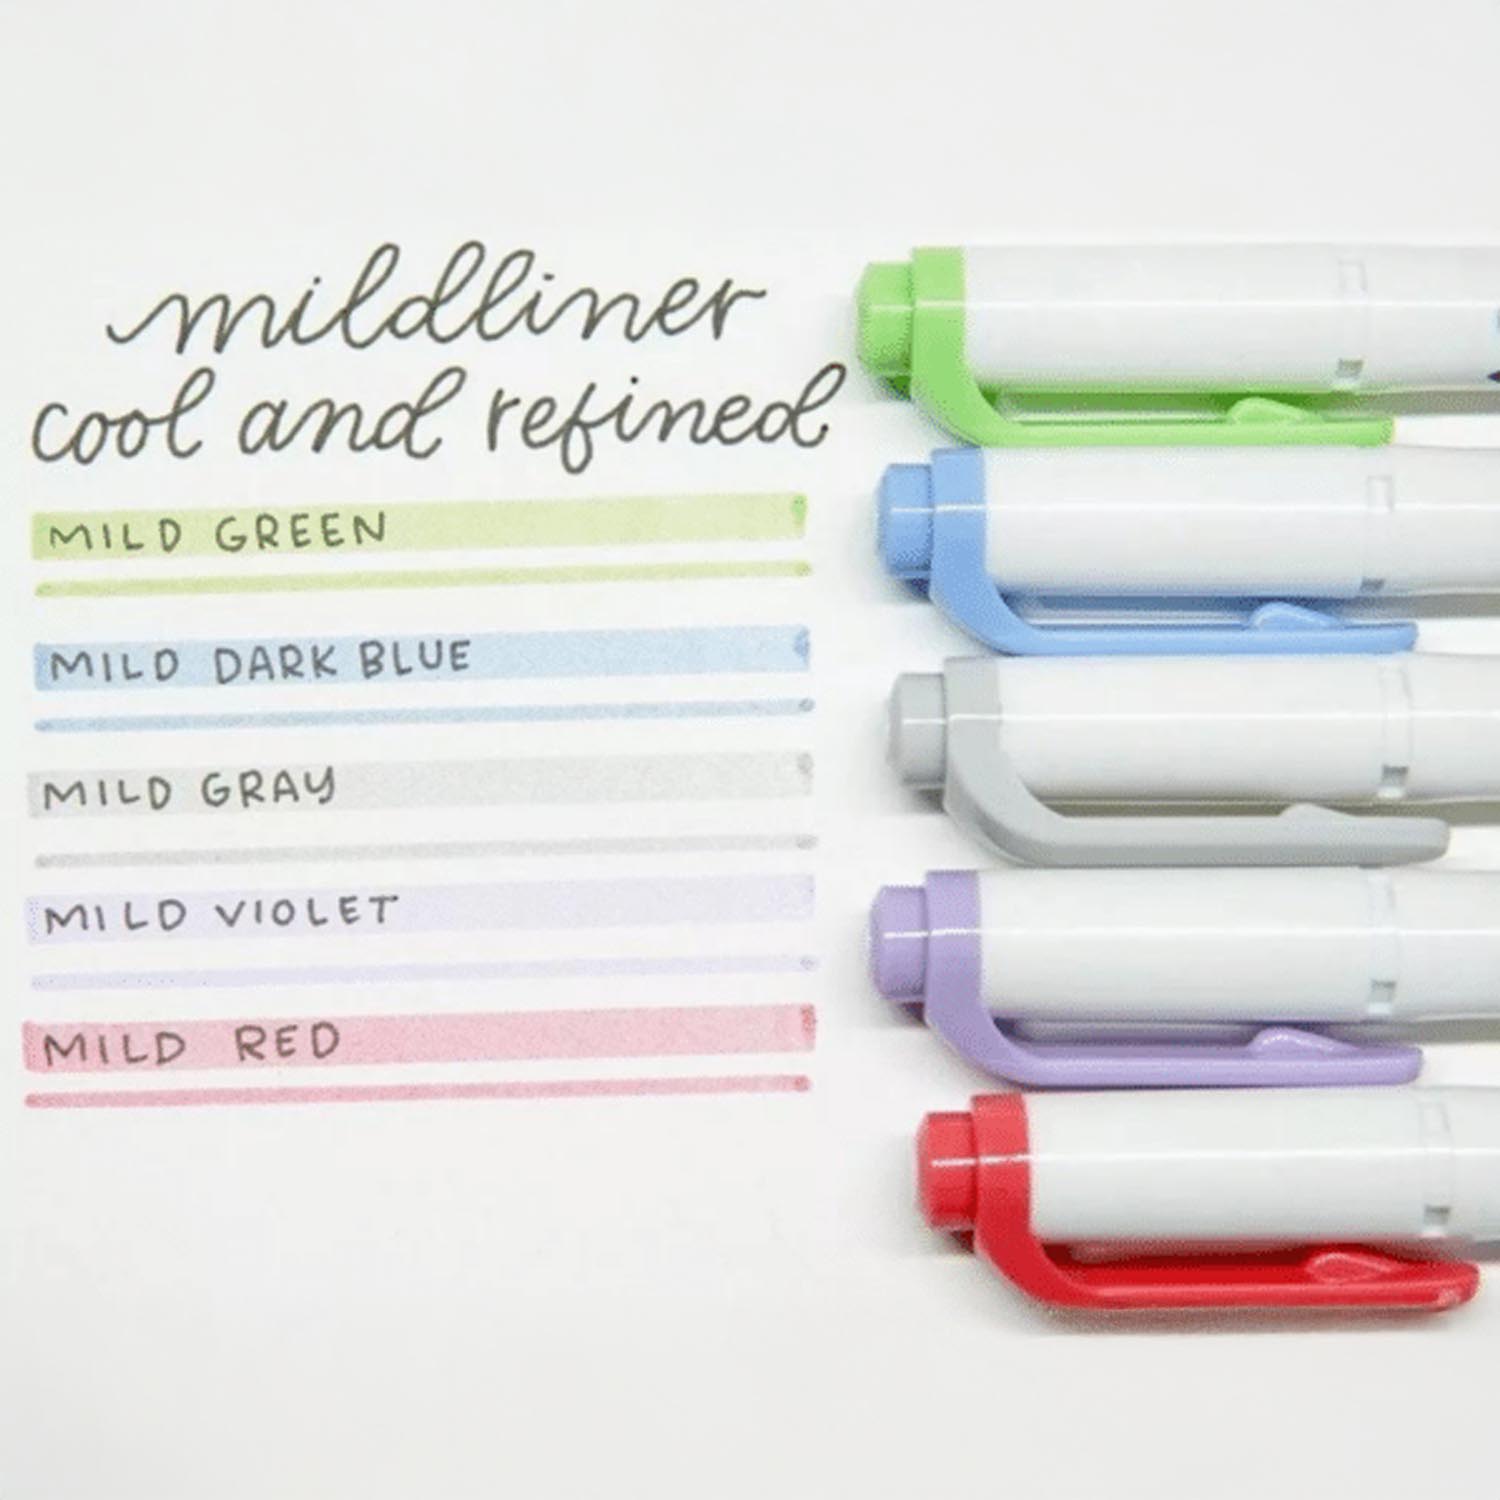 mildliner
cool and refined
MILD GREEN
MILD DARK BLUE
MILD GRAY
MILD VIOLET
MILD RED